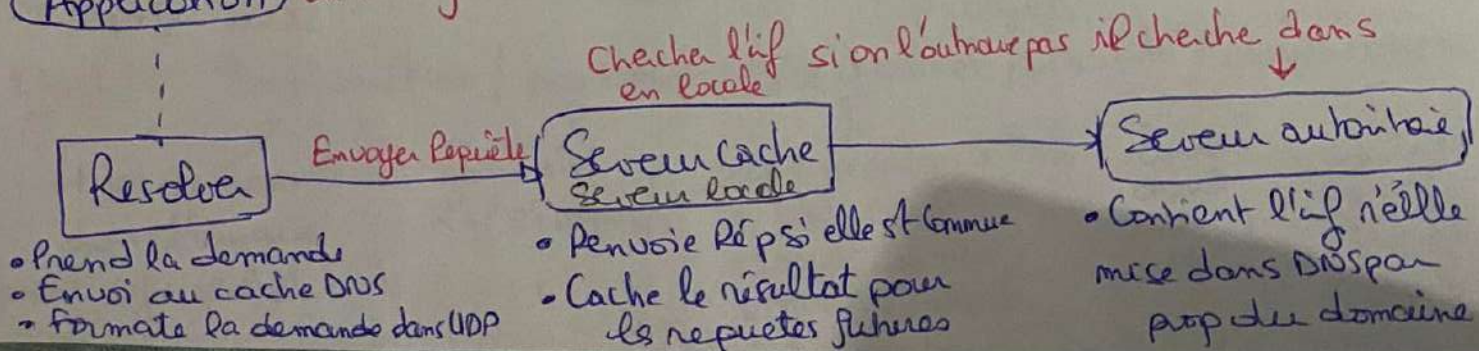 Application
Chercher l'inf si on l'outrouve pas il cherche dans
en locale
Resolver
Envoyer Requête
Serveur cache
Serveur locale
Serveur autoritaire
• Prend la demande
• Envoi au cache DNS
• formate la demande dans UDP
• Renvoie Rép si elle st connue
• Cache le résultat pour
les requetes futures
• Contient l'inf réelle
mise dans DNS par
prop du domaine